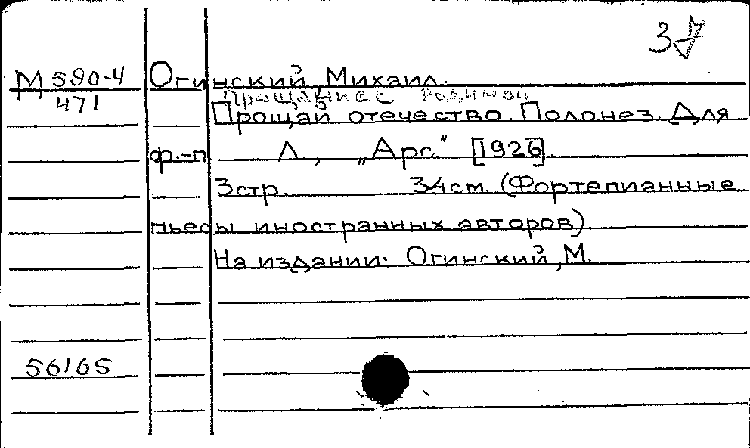 37
М 590-4 Огинский, Михаил.
471 Прощание с Родиной
Прощай отечество. Полонез. Для
ф.-п. Л., „Арс." [1926].
3 стр. 34 см. (Фортепианные
пьесы иностранных авторов)
На издании: Огинский, М.
56165